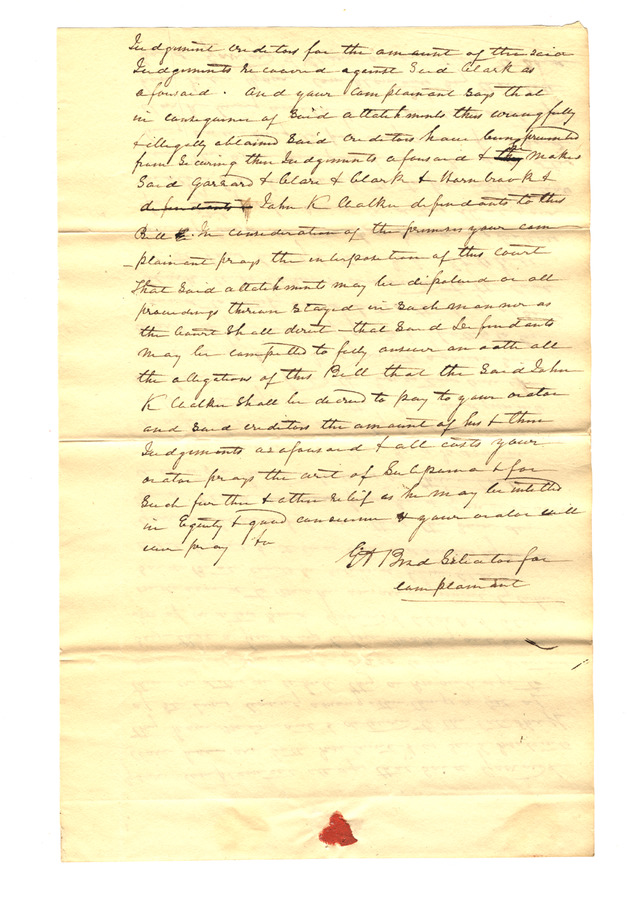 Judgment creditors for the amount of the said
Judgements recovered against Said Clark as
aforesaid. And your complainant Says that
in consequence of Said attatchments thus wrongfully
& illegally obtained Said creditors have been prevented
from Securing their Judgments aforesaid & they makes
Said Garrard & Clark & Hornbrook &
defendants John K Chalker defendants to this
Bill. In consideration of the premises your com
-plainant prays the interposition of this court
That Said attatchments may be dissolved or all
proceedings thereon Stayed in Such manner as
the Court Shall direct - that Said Defendants
may be compelled to fully answer on oath all
the allegations of this Bill that the Said John
K Chalker Shall be decreed to pay to your orator
and Said creditors the amount of his & their
Judgements as aforesaid & all costs your
orator prays the writ of Subpoena & for
Such further & other relief as he may be intitled
in Equity & good conscience & your orator will
ever pray &c
Solicitor for
complainant